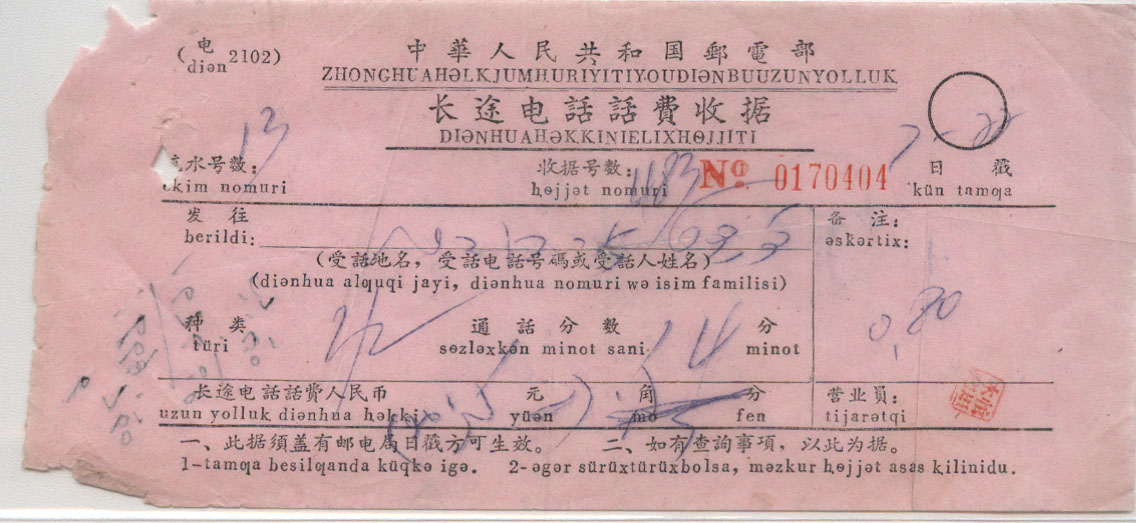 (电 2102)
diən
中華人民共和国郵電部
ZHONGHUAHƏLKJUMHURIYITIYOUDIƏNBUUZUNYOLLUK
长途电話話費收据
DIƏNHUAHƏKKINIELIXHɵJJITI
13
水号数:
ekim nomuri
收据号数:
ⱨɵjjət nomuri
No. 0170404
7-22
日 戳
kün tamƣa
发 往
berildi:
备 注:
əskərtix:
(受話地名,受話电話号碼或受話人姓名)
(diənhua alƣuqi jayi, diənhua nomuri wə isim familisi)
0,80
种 类
türi
通 話 分 数 分
sɵzləxkən minot sani minot
长途电話話費人民币 元 角 分
uzun yolluk diənhua ⱨəkki yüən mo fen
营业员:
tijarətqi
一、此据須盖有邮电局日戳方可生效。 二、如有查詢事項,以此为据。
1-tamƣa besilƣanda küqkə igə. 2-əgər sürüxtürüxbolsa, məzkur ⱨɵjjət asas kilinidu.